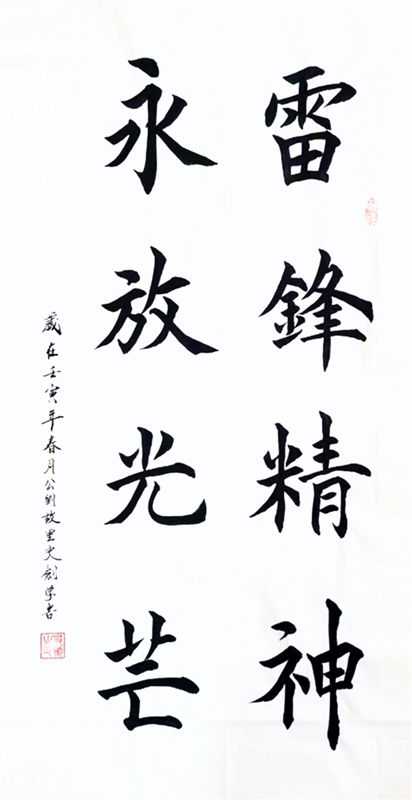 雷鋒精神
永放光芒
歲在壬寅年春月公劉故里史創學書